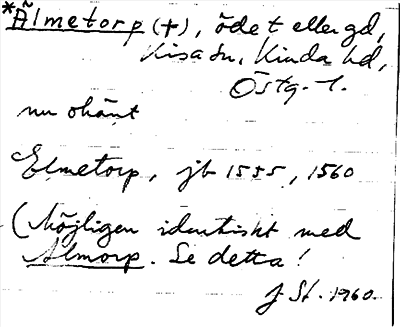 *Älmetorp (+), ödet ellergd,
Kisa sn, Kinda hd,
Östg. l.
nu okänt
Elmetorp, jb 1555, 1560
(Möjligen identiskt med
Almorp. Se detta!
J St. 1960.